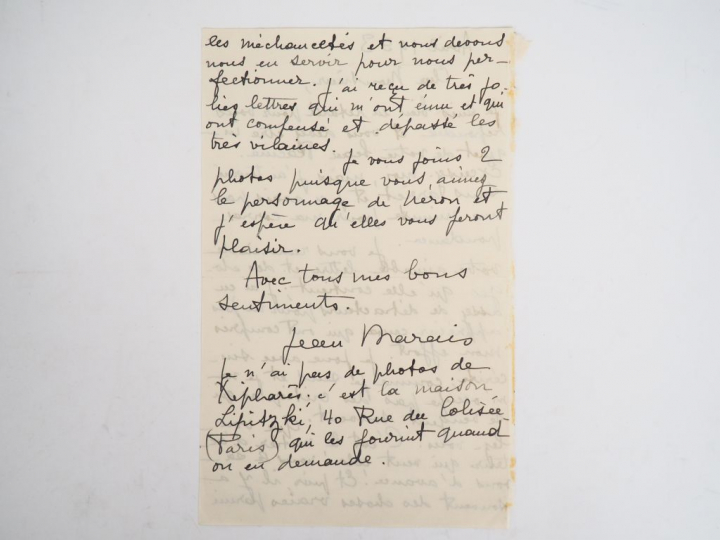 les méchancetés et nous devons
nous en servir pour nous per-
fectionner. J'ai reçu de très jo-
lies lettres qui m'ont ému et qui
ont compensé et dépassé les
très vilaines.
Je vous joins 2
photos puisque vous aimez
le personnage de Néron et
j'espère qu'elles vous feront
plaisir.
Avec tous mes bons
sentiments.
Jean Marais
Je n'ai pas de photos de
Xipharès; c'est la maison
Lipitzki, 40 Rue du Colisée
(Paris) qui les fournit quand
on en demande.